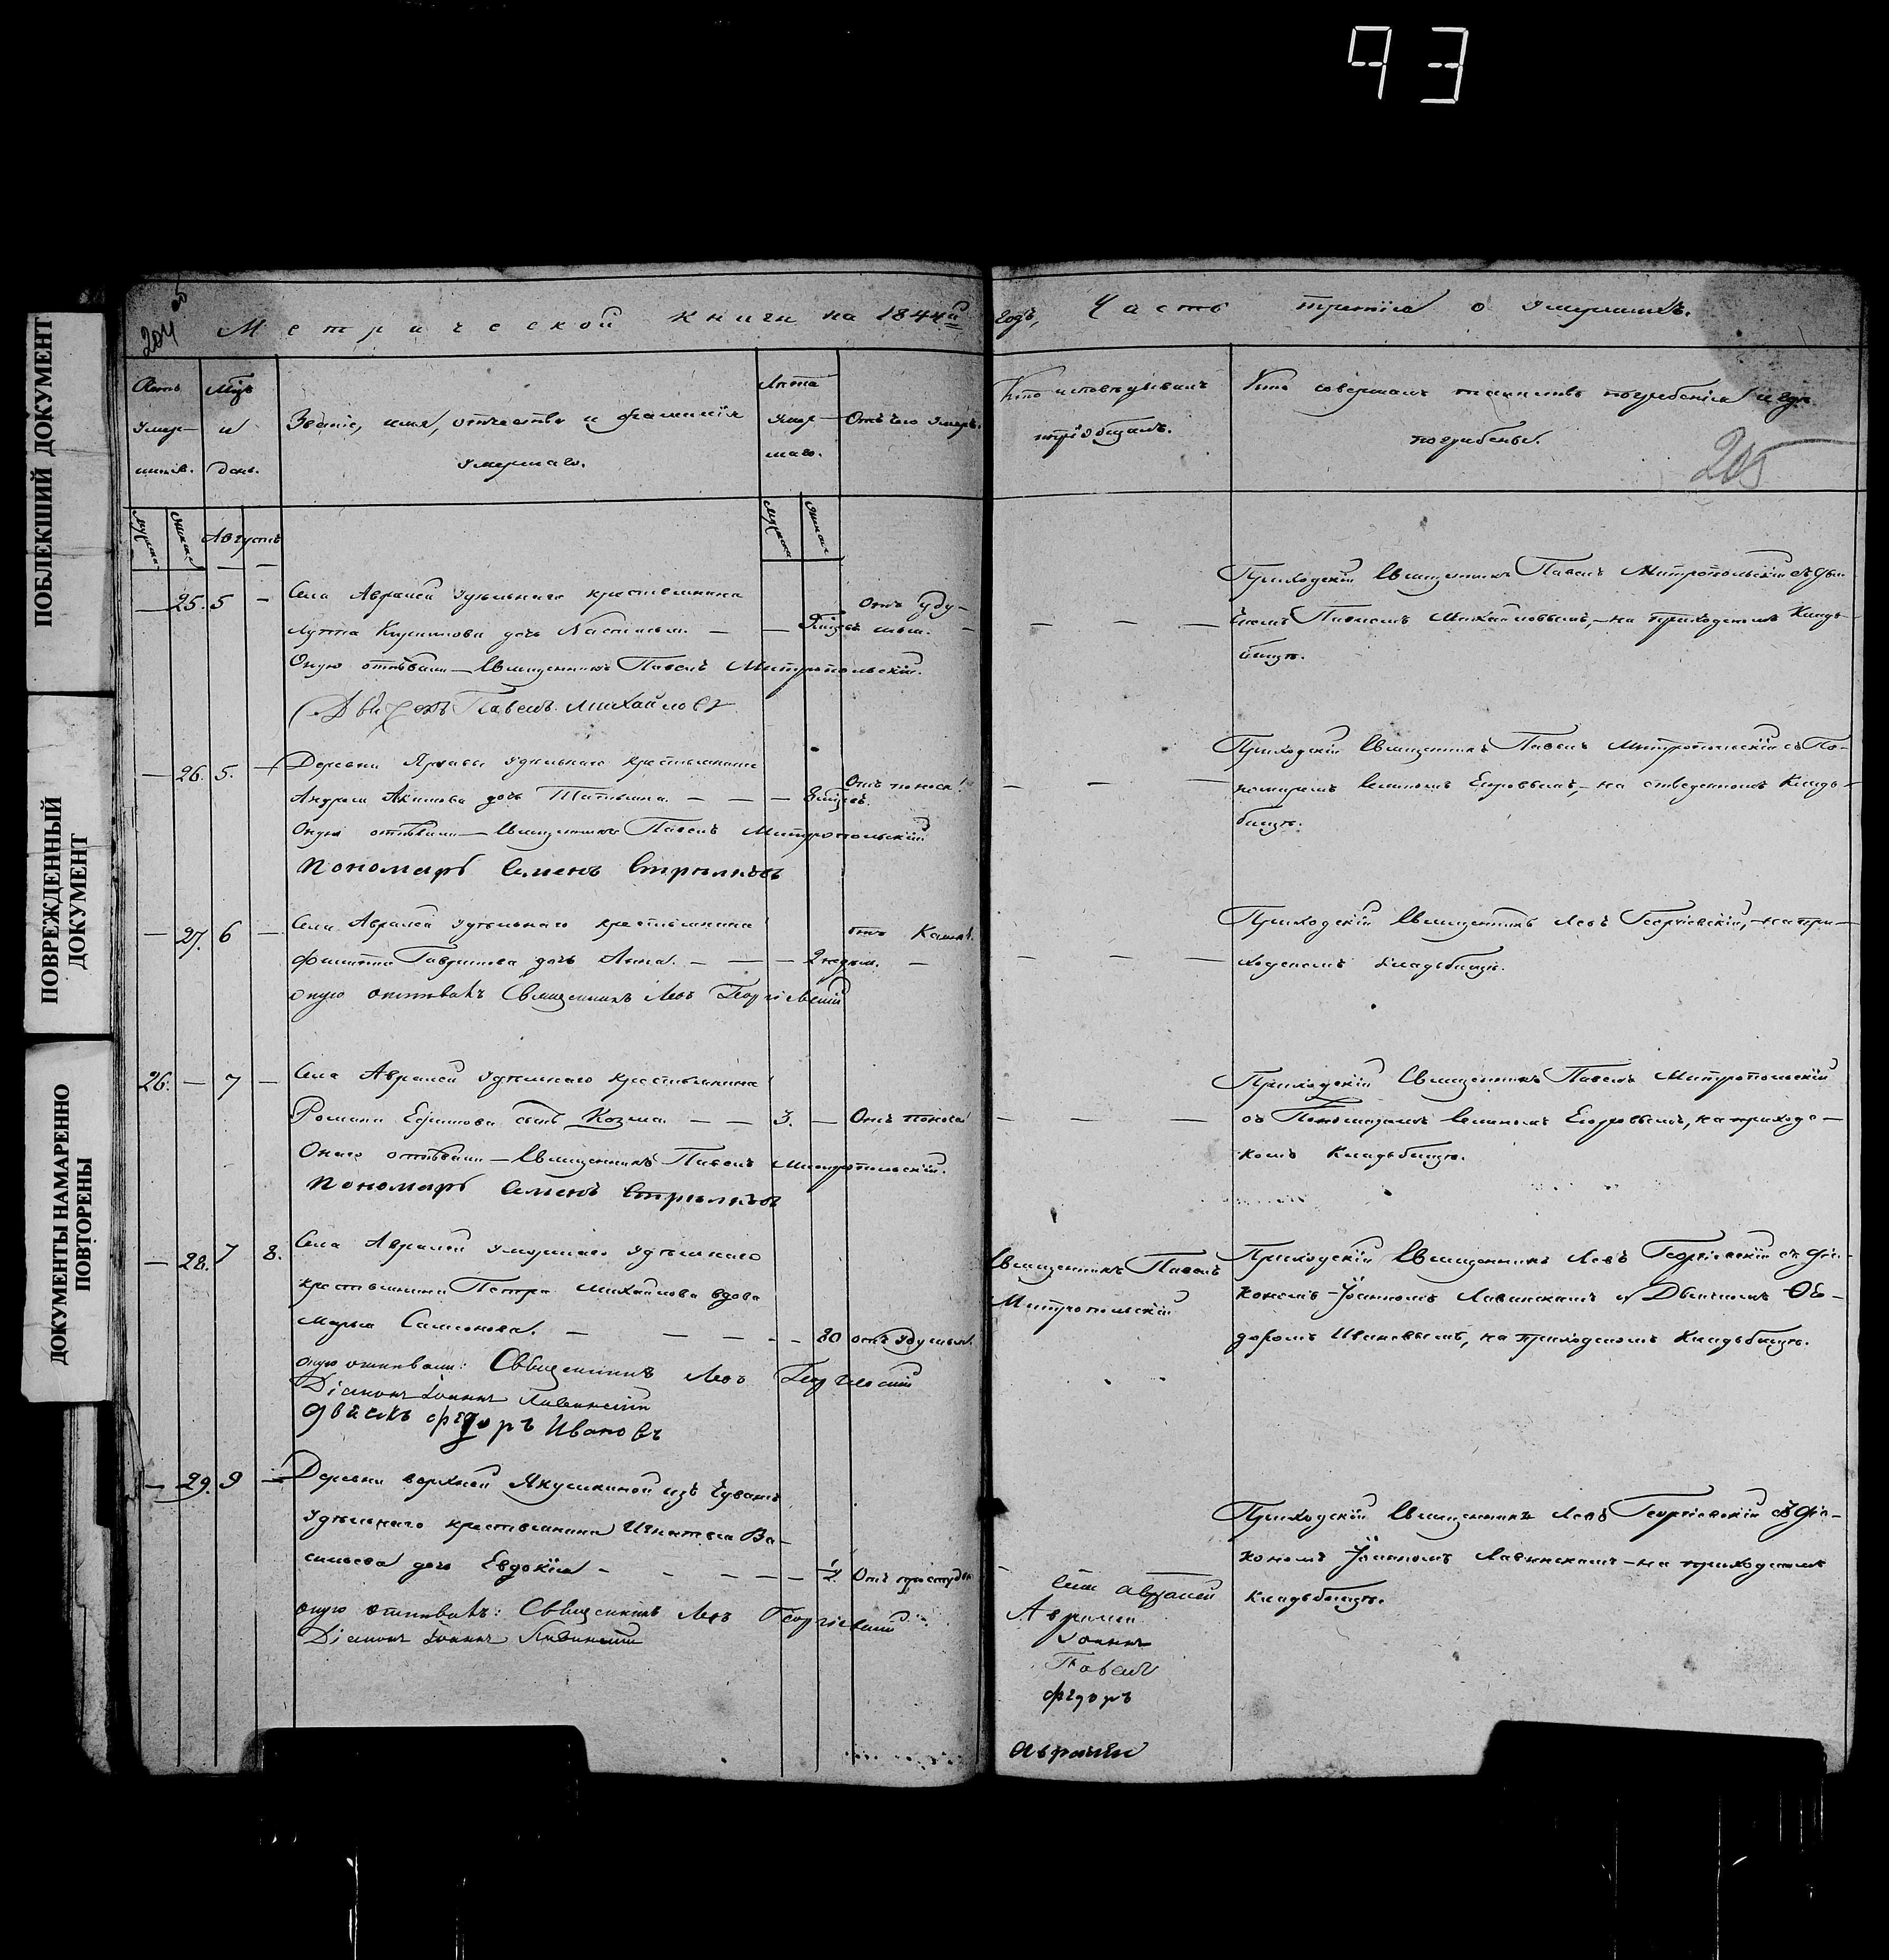 93
ПОБЛЕКШИЙ ДОКУМЕНТ
ПОВРЕЖДЕННЫЙ
ДОКУМЕНТ
ДОКУМЕНТЫ НАМАРЕННО
ПОВТОРЕНЫ
204
Метрической книги на 1844й
годъ, Часть третія о умершихъ.
205
Счетъ
умер-
шихъ.
Мцъ
и
день.
Званіе, имя, отчество и фамилія
умершаго.
Лѣта
умер-
шаго.
Отъ чего умеръ.
Кто исповѣдывалъ
пріобщалъ.
Кто совершалъ погребеніе и гдѣ
погребены.
Августъ
25. 5
Села Авралей удѣльнаго крестьянина
дочь
Отъ уду-
шья.
Оную отпѣвали Священникъ Павелъ Митропольскій.
Дьячекъ Павелъ Михайловъ
Приходскій Священникъ Павелъ Митропольскій съ Дья-
чкомъ Павломъ Михайловымъ, на приходскомъ Клад-
бищѣ.
26. 5.
Деревни удѣльнаго крестьянина
Андрея Акимова дочь Татьяна.
Отъ поноса
Оную отпѣвали Священникъ Павелъ Митропольскій
Пономарь Семенъ Стрѣлковъ
Приходскій Священникъ Павелъ Митропольскій съ По-
номаремъ Семеномъ Егоровымъ, на отведенномъ Клад-
бищѣ.
27. 6
Села Авралей удѣльнаго крестьянина
Филиппа Гаврилова дочь Анна.
2 недѣл.
отъ
оную отпѣвалъ Священникъ Левъ Георгіевскій
Приходскій Священникъ Левъ Георгіевскій, на при-
ходскомъ кладбищѣ.
26. 7
Села Авралей удѣльнаго крестьянина
Романа Ефимова сынъ Козма
3.
Отъ поноса
Онаго отпѣвали Священникъ Павелъ Митропольскій.
Пономарь Семенъ Стрѣлковъ
Приходскій Священникъ Павелъ Митропольскій
съ Пономаремъ Семеномъ Егоровымъ, на приходс-
комъ Кладбищѣ.
28. 7 8.
Села Авралей умершаго удѣльнаго
крестьянина Петра Михайлова вдова
Марья Самсонова.
80 отъ удушья.
оную отпѣвали: Священникъ Левъ Георгіевскій
Діаконъ Іоаннъ Лавинскій
дьячекъ Федоръ Ивановъ
Священникъ Павелъ
Митропольскій
Приходскій Священникъ Левъ Георгіевскій съ діа-
кономъ Іоанномъ Лавинскимъ и Дьячкомъ Ѳе-
доромъ Ивановымъ, на приходскомъ Кладбищѣ.
29. 9
Деревни верхней Якушкиной изъ Чувашъ
удѣльнаго крестьянина Игнатья Ва-
сильева дочь Евдокія
Отъ простуды
оную отпѣвалъ: Священникъ Левъ Георгіевскій
Діаконъ Іоаннъ Лавинскій
Приходскій Священникъ Левъ Георгіевскій съ діа-
кономъ Іоанномъ Лавинскимъ на приходскомъ
кладбищѣ.
Авралей
Іоаннъ
Павелъ
Федоръ